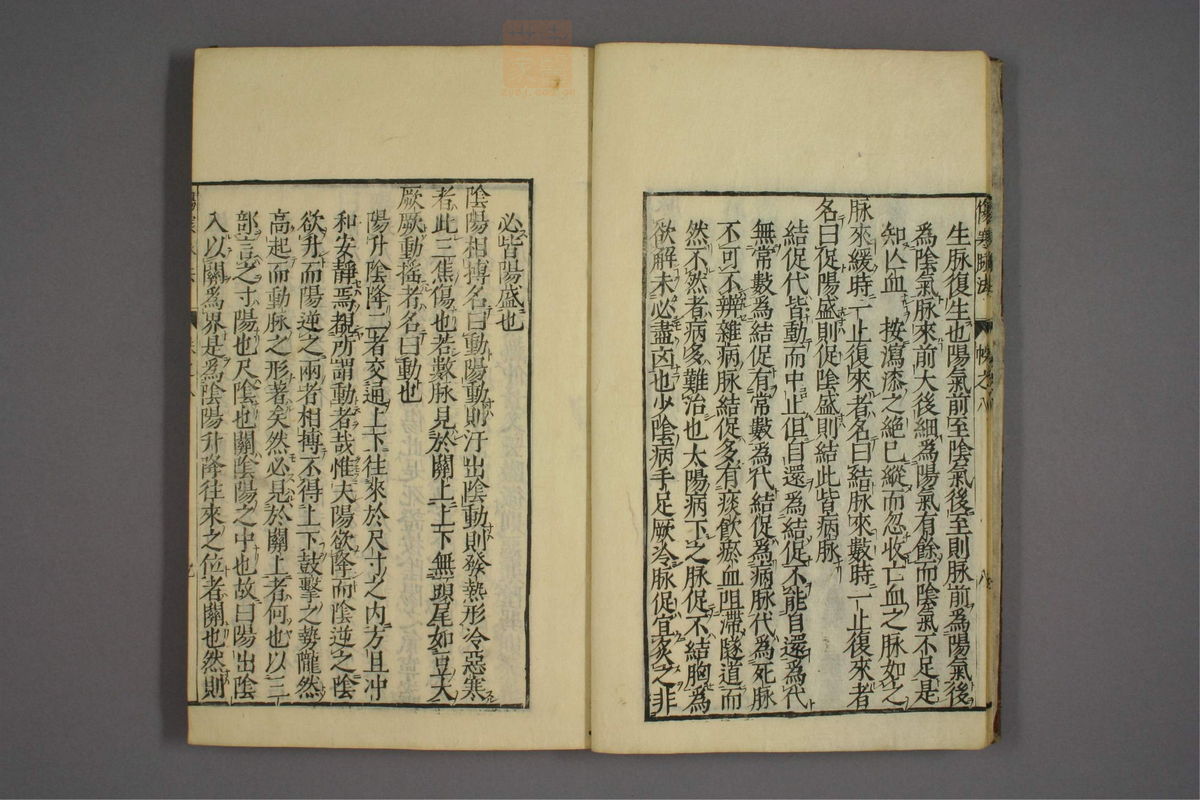 傷寒脉法 帙之八 八
生脉復生也陽氣前至陰氣後至則脉前為陽氣後
為陰氣脉來前大後細為陽氣有餘而陰氣不足是
知亾血 按瀉漆之絕已縱而忽收亡血之脉如之
脉來緩時一止復來者名曰結脉來數時一止復來者
名曰促陽盛則促陰盛則結此皆病脉
結促代皆動而中止但自還為結促不能自還為代
無常數為結促有常數為代結促為病脉代為死脉
不可不辨雜病脉結促多有痰飲瘀血阻滯隧道而
然不然者病多難治也太陽病下之脉促不結胸為
欲解未必盡凶也少陰病手足厥冷脉促宜灸之非
必皆陽盛也
陰陽相搏名曰動陽動則汗出陰動則發熱形冷惡寒
者此三焦傷也若數脉見於關上上下無頭尾如豆大
厥厥動搖者名曰動也
陽升陰降二者交通上下往來於尺寸之内方且冲
和安靜焉覩所謂動者哉惟夫陽欲降而陰逆之陰
欲升而陽逆之兩者相搏不得上下鼓擊之勢隴然
高起而動脉之形著矣然必見於關上者何也以三
部言之寸陽也尺陰也關陰陽之中也故曰陽出陰
入以關爲界是爲陰陽升降往來之位者關也然則